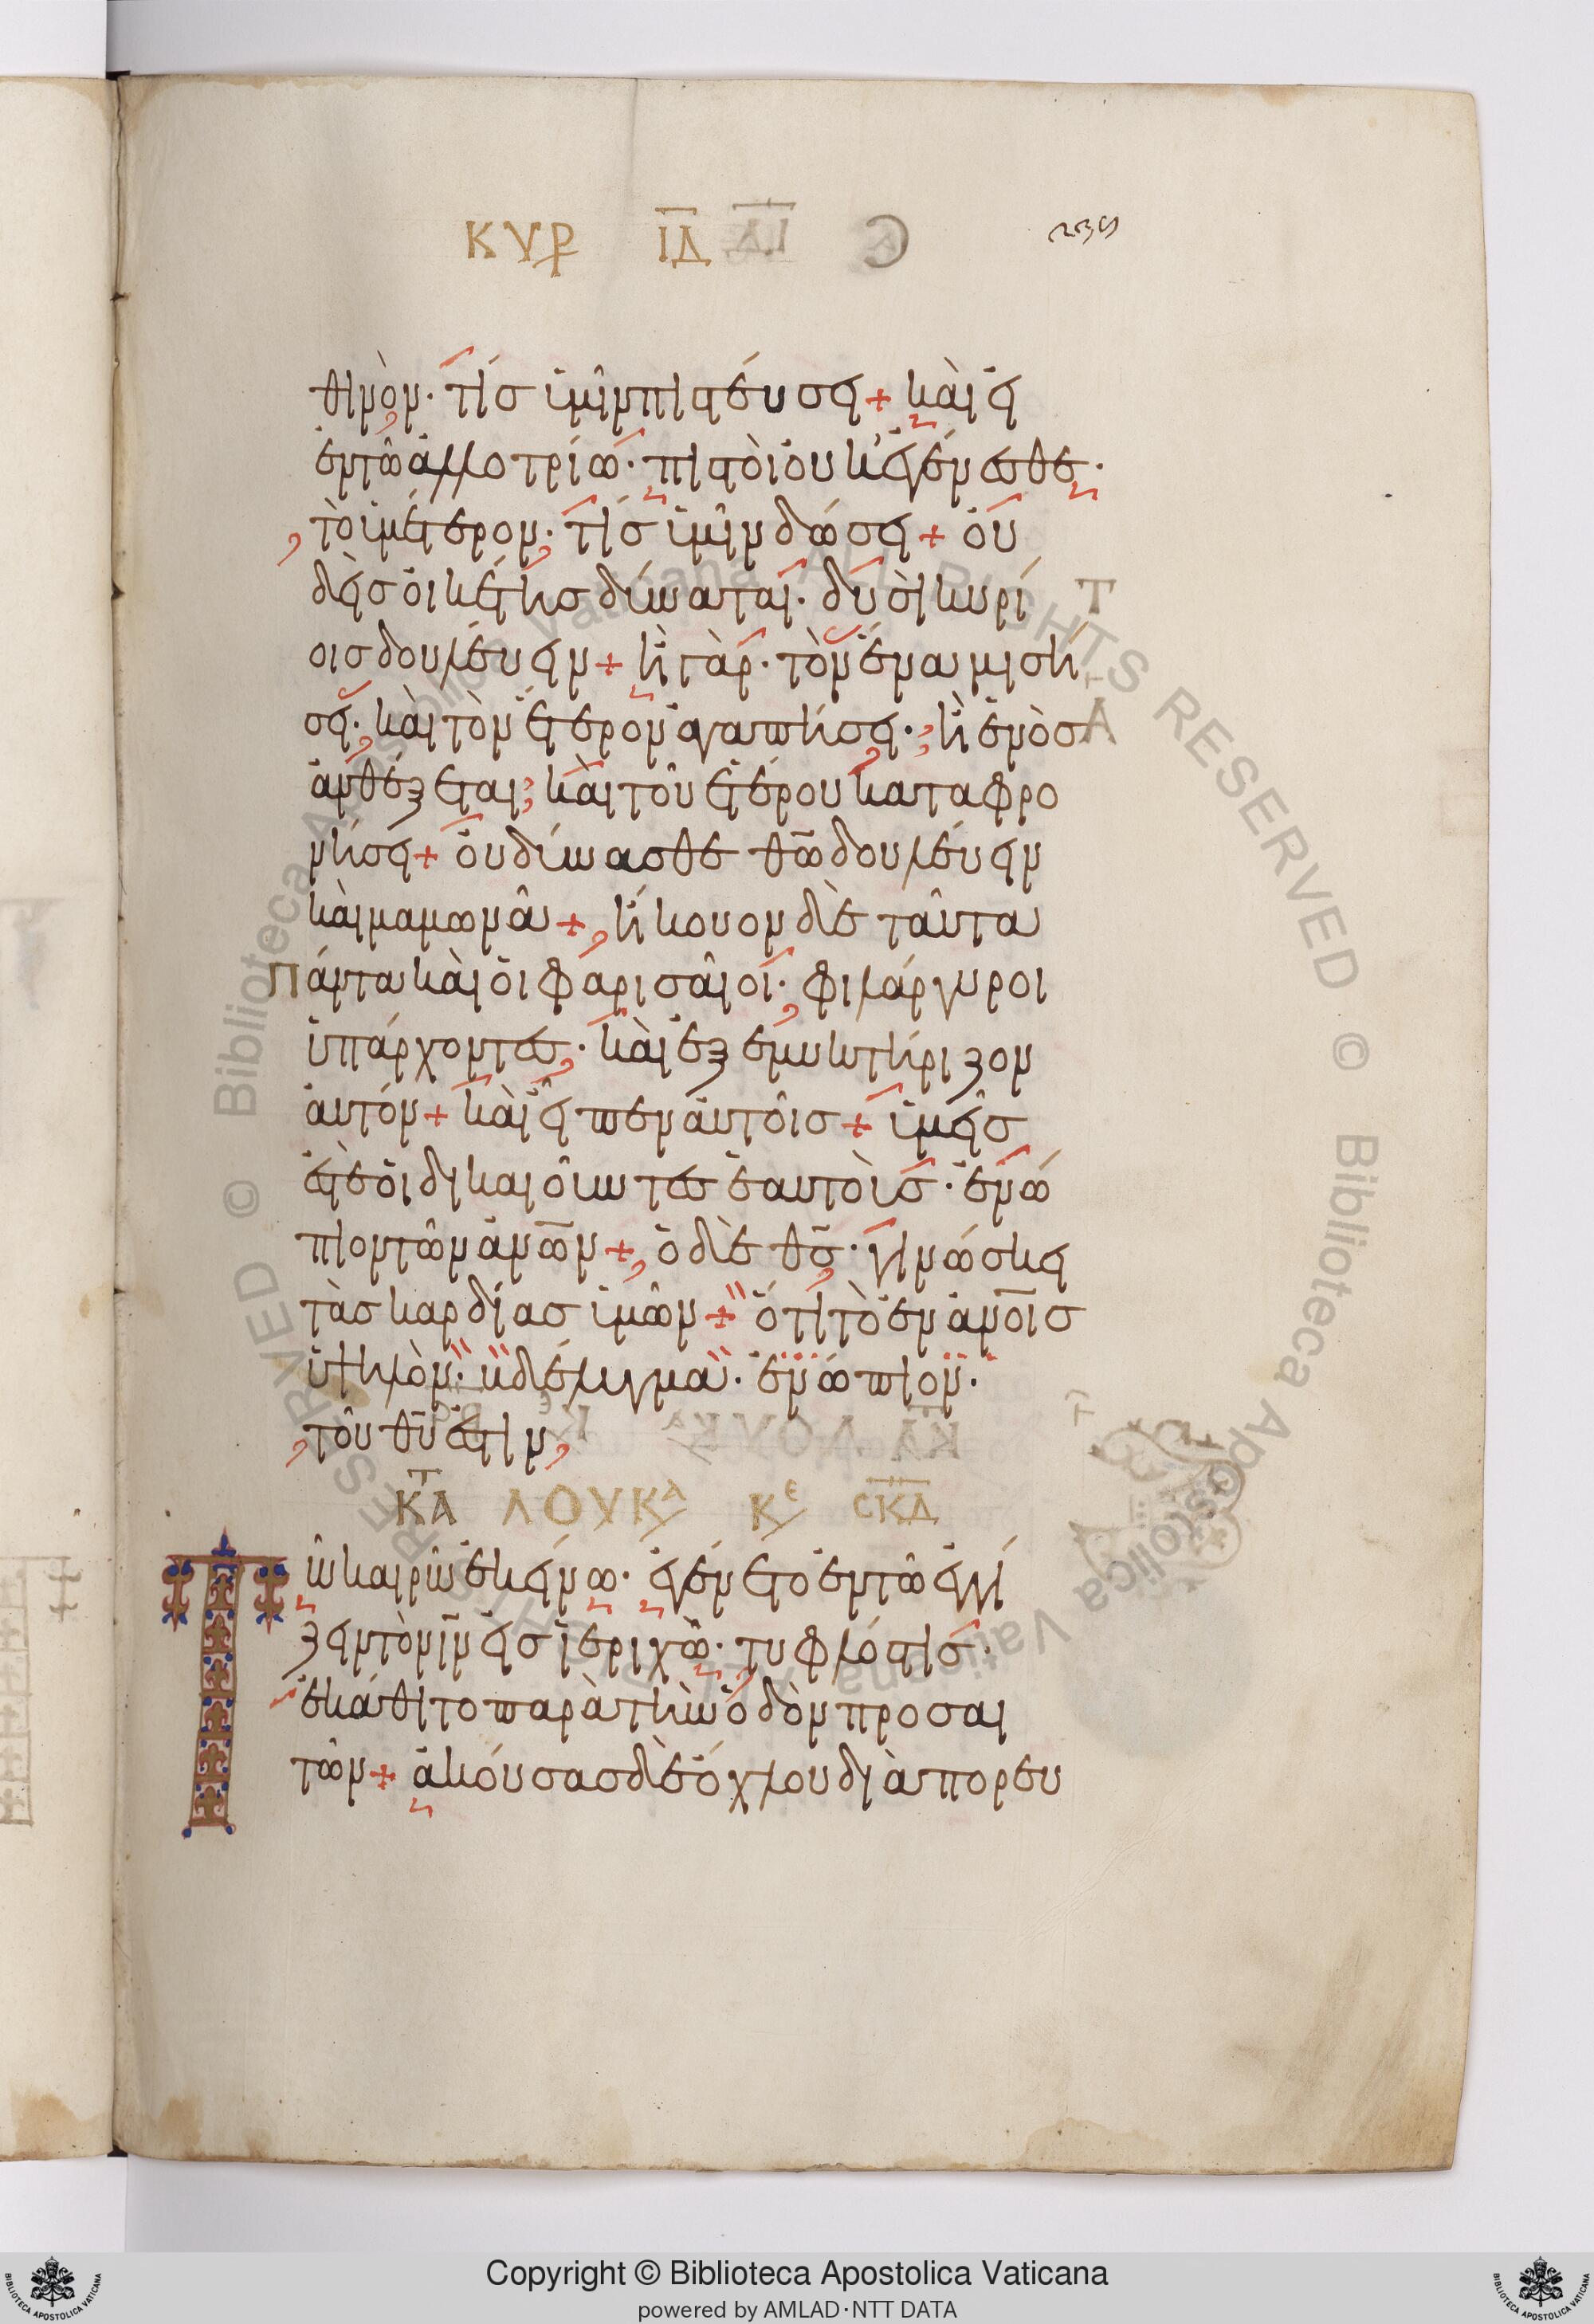 ΚΥΡ ΙΔ
239
θινὸν· τίσ ὑμῖν πιστέυσει + κὰι εἰ
ἐντῶ ἀλλοτρίω· πιστὸι ὀυκ ἐγένεσθε·
τὸ ὑμέτερον· τίσ ὑμῖν δώσει + ὀυ
δεὶσ ὀικέτησ δύναται· δυσὶ κυρί
οισ δουλέυειν + ἢ γὰρ· τὸν ἕνα μισή
σει· κὰι τὸν ἕτερον ἀγαπήσει· ἢ ἑνὸσ
ἀνθέξεται· κὰι τοῦ ἑτέρου καταφρο
νήσει + ὀυ δύνασθε θω̅ δουλέυειν
κὰι μαμωνᾶ + ἤκουον δὲ ταῦτα
πάντα κὰι ὁι φαρισᾶιοι· φιλάργυροι
ὑπάρχοντεσ· κὰι ἐξεμυκτήριζον
ἀυτόν + κὰι εἶπεν ἀυτοῖσ + ὑμεῖσ
ἐστὲ ὁι δικαιοῦντεσ ἑαυτοὺσ· ἐνώ
πιον τῶν ἀνω̅ν + ὁ δὲ θ̅σ· γινώσκει
τὰσ καρδίασ ὑμῶν + ὅτι τὸ ἐν ἀνο̅ισ
ὑψηλὸν· βδέλυγμα· ἐνώπιον·
τοῦ θ̅υ ἐστίν
ΚΑΤ ΛΟΥΚΑ ΚΕ ΣΚΔ
Τῶ καιρῶ ἐκείνω· ἐγένετο ἐντῶ ἐγγί
ζειν τὸν ι̅ν εἰσ ἱεριχῶ· τυφλόστισ·
ἐκάθιτο παρὰ τὴν ὁδὸν προσαι
τῶν + ἀκόυσασ δὲ ὄχλου διὰ πορευ
Copyright © Biblioteca Apostolica Vaticana
powered by AMLAD·NTT DATA